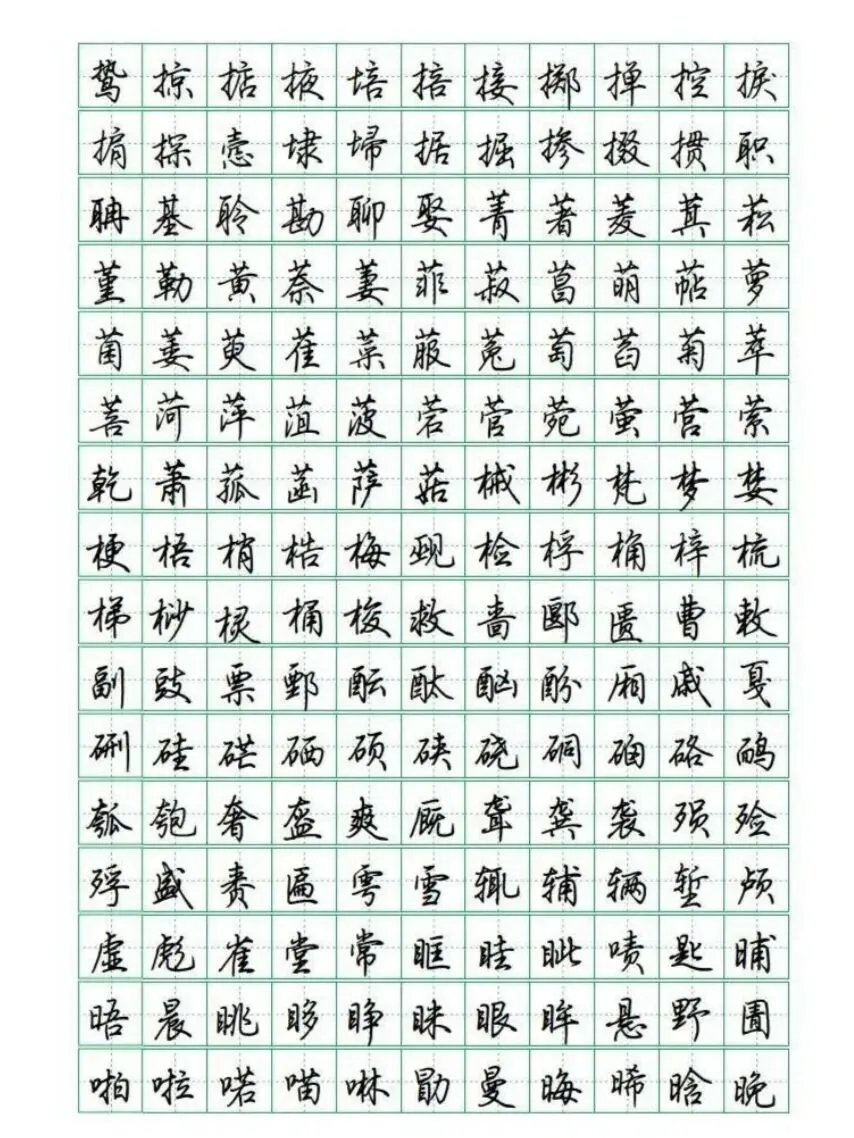 鸷掠掂掖培掊接掷掸控捩
掮探悫埭埽据掘掺掇掼职
聃基聆勘聊娶菁著菱萁菘
堇勒黄萘萋菲菽菖萌萜萝
菌萎萸萑菜菔菟萄萏菊萃
菩菏萍菹菠菪菅菀萤营萦
乾萧菰菡萨菇械彬梵梦婪
梗梧梢梏梅觋检桴桷梓梳
梯桫棂桶梭救啬郾匮曹敕
副豉票鄄酝酞酗酚厢戚戛
硎硅硭硒硕硖硗硐硇硌鸸
瓠匏奢盔爽厩聋龚袭殒殓
殍盛赉匾雩雪辄辅辆堑颅
虚彪雀堂常眶眭眦啧匙晡
晤晨眺眵睁眯眼眸悬野圊
啪啦喏喵啉勖曼晦晞晗晚